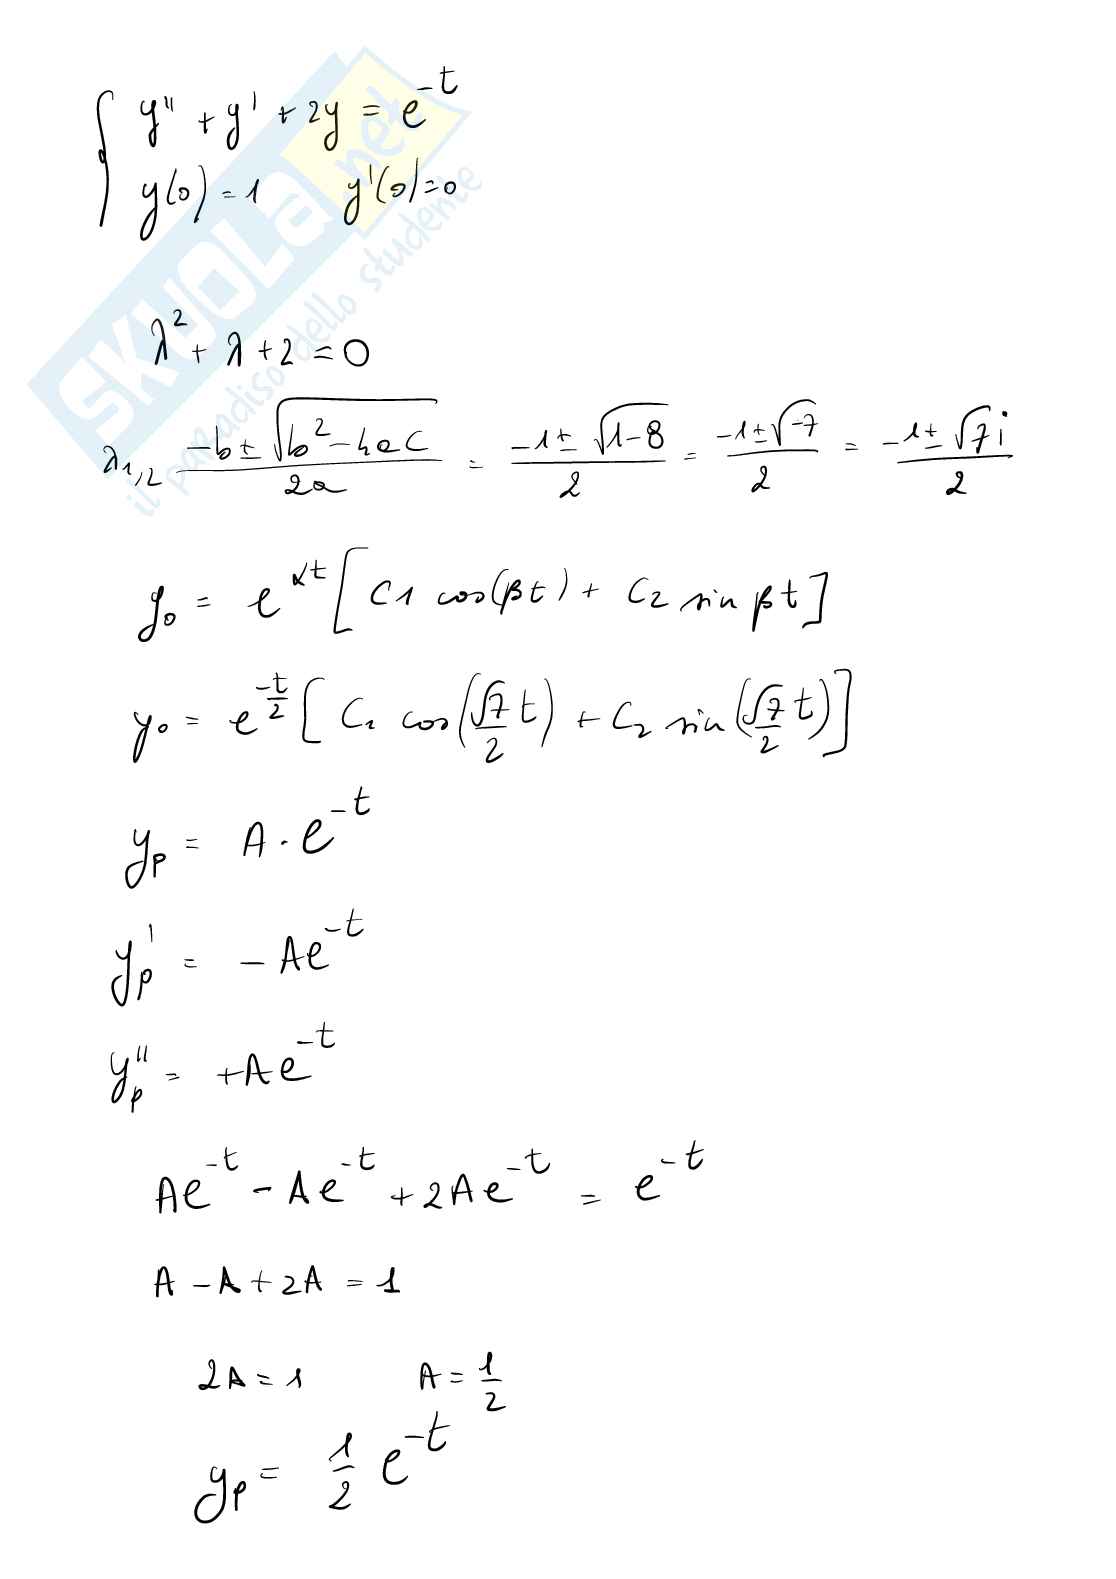 y'' + y' + 2y = e^-t
y(0) = 1 y'(0) = 0
SKUOLA.net
il paradiso dello studente
λ² + λ + 2 = 0
λ1,2 (-b ± √(b² - 4ac))/2a = (-1 ± √(1-8))/2 = (-1 ± √-7)/2 = (-1 ± √7 i)/2
y₀ = e^αt [C1 cos(βt) + C2 sin βt]
y₀ = e^(-t/2) [C₁ cos(√7/2 t) + C₂ sin(√7/2 t)]
yp = A · e^-t
yp' = -Ae^-t
yp'' = +Ae^-t
Ae^-t - Ae^-t + 2Ae^-t = e^-t
A - A + 2A = 1
2A = 1 A = 1/2
yp = 1/2 e^-t